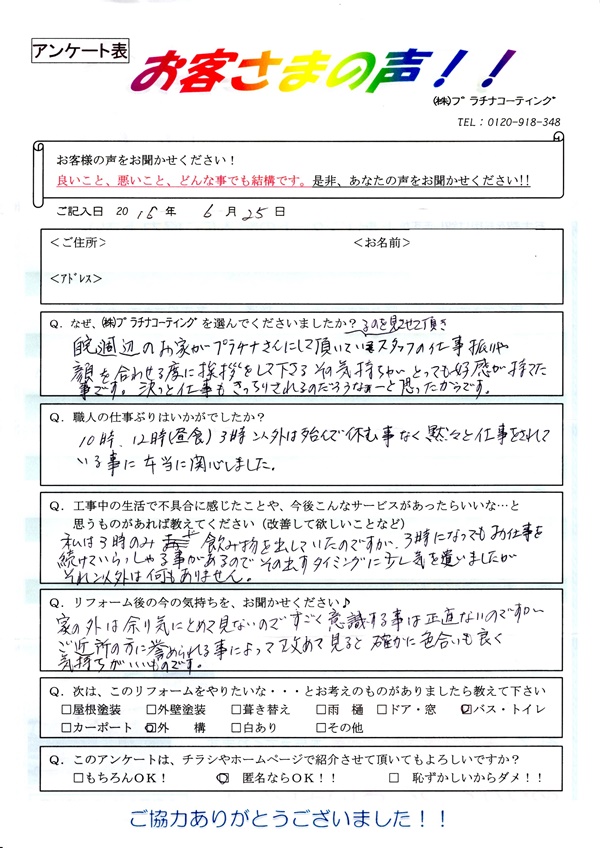 アンケート表
お客さまの声！！
㈱プラチナコーティング
TEL：0120-918-348
お客様の声をお聞かせください！
良いこと、悪いこと、どんな事でも結構です。是非、あなたの声をお聞かせください!!
ご記入日 2016年 6月25日
＜ご住所＞ ＜お名前＞
＜アドレス＞
Q．なぜ、㈱プラチナコーティングを選んでくださいましたか？
るのを見させて頂き
自宅周辺のお家がプラチナさんにして頂いていてスタッフの仕事振りや
顔を合わせる度に挨拶をして下さる その気持ちがとっても好感が持てた
事です。決っと仕事もきっちりされるのだろうなぁーと思ったからです。
Q．職人の仕事ぶりはいかがでしたか？
10時、12時(昼食) 3時以外は殆んど休む事なく黙々と仕事をされて
いる事に本当に関心しました。
Q．工事中の生活で不具合に感じたことや、今後こんなサービスがあったらいいな…と
思うものがあれば教えてください（改善して欲しいことなど）
私は3時のみ 飲み物を出していたのですが、3時になってもお仕事を
続けていらっしゃる事があるので その出すタイミングに少し気を遣いましたが
それ以外は何もありません。
Q．リフォーム後の今の気持ちを、お聞かせください♪
家の外は余り気にとめて見ないのですごく意識する事は正直ないのですが
ご近所の方に誉められる事によって改めて見ると確かに色合いも良く
気持ちがいいものです。
Q．次は、このリフォームをやりたいな・・・とお考えのものがありましたら教えて下さい
□屋根塗装 □外壁塗装 □葺き替え □雨 樋 □ドア・窓 ☑バス・トイレ
□カーポート ☑外 構 □白あり □その他
Q．このアンケートは、チラシやホームページで紹介させて頂いてもよろしいですか？
□もちろんOK！ ☑ 匿名ならOK！！ □ 恥ずかしいからダメ！！
ご協力ありがとうございました！！